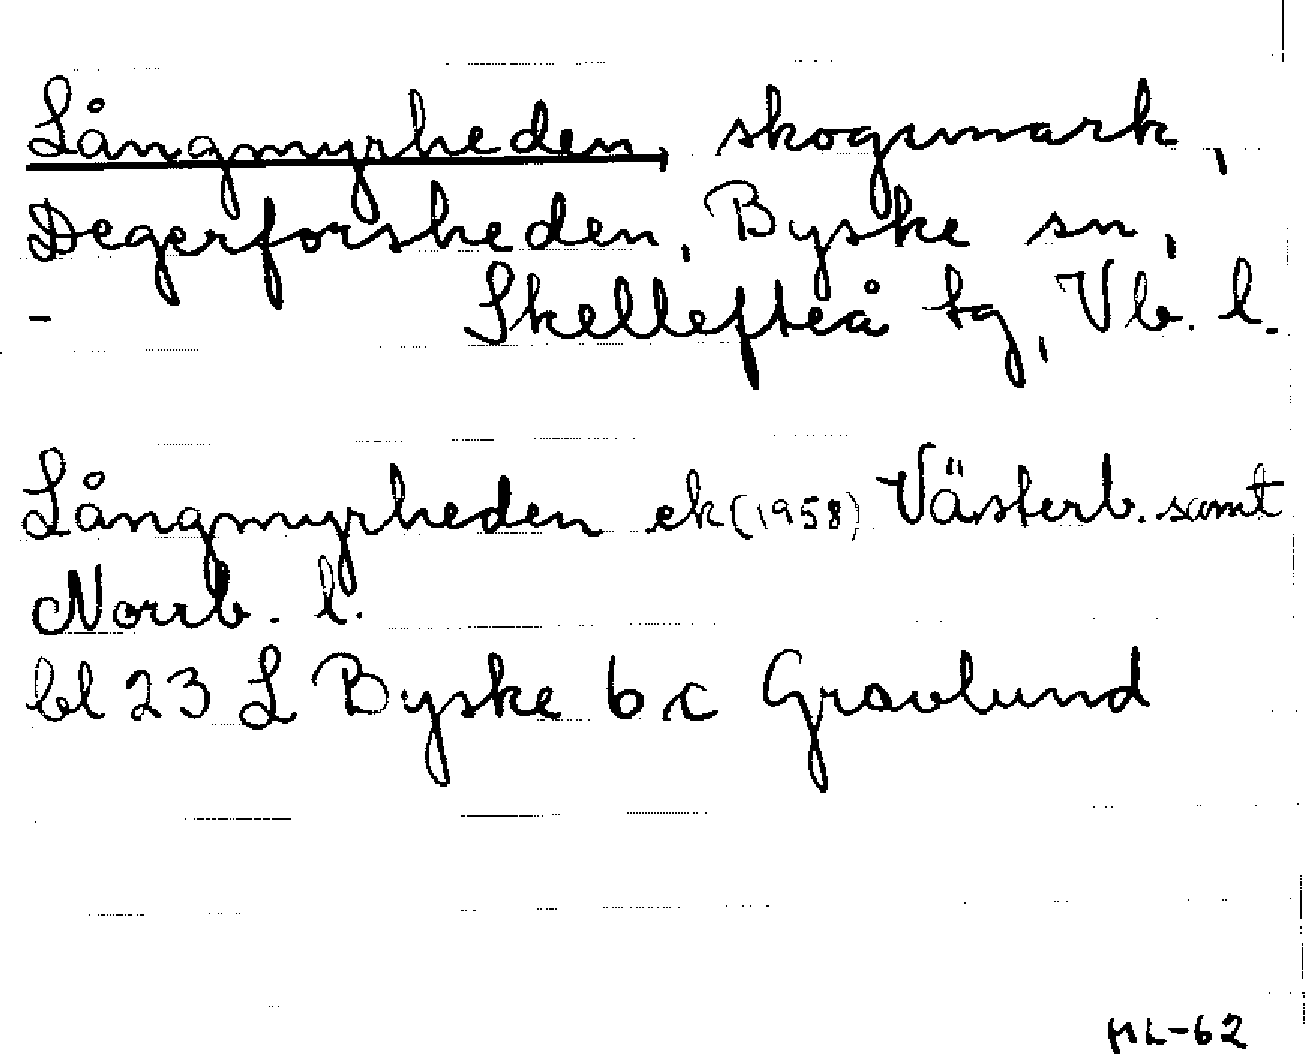 Långmyrheden, skogsmark,
Degerforsheden, Byske sn,
- Skellefteå tg, Vb. l.
Långmyrheden ek (1958) Västerb. samt
Norrb. l.
bl 23 L Byske 6 c Gravlund
ML-62